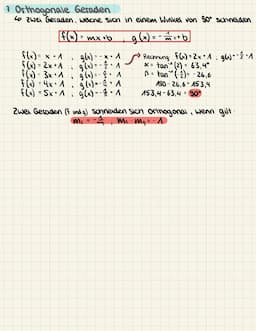 1 Orthogonale Geraden
↳ zwei Geraden, welche sich in einem Winkel von 90° schneiden
f(x) = mx+b , g(x) = -1/m x+b
f(x) = x+1 , g(x) = -x+1
f(x) = 2x+1 , g(x) =
f(x) = 3x+1 , g(x) =
f(x) = 4x+1 , g(x) =
f(x) = 5x+1 , g(x) =
Rechnung f(x) = 2x+1
α = tan⁻¹(2) = 63,4°
β = tan⁻¹ = -26,6
180 - 26,6 = 153,4
153,4 - 63,4 = 90°
Zwei Geraden (f und g) schneiden sich orthogonal, wenn gilt